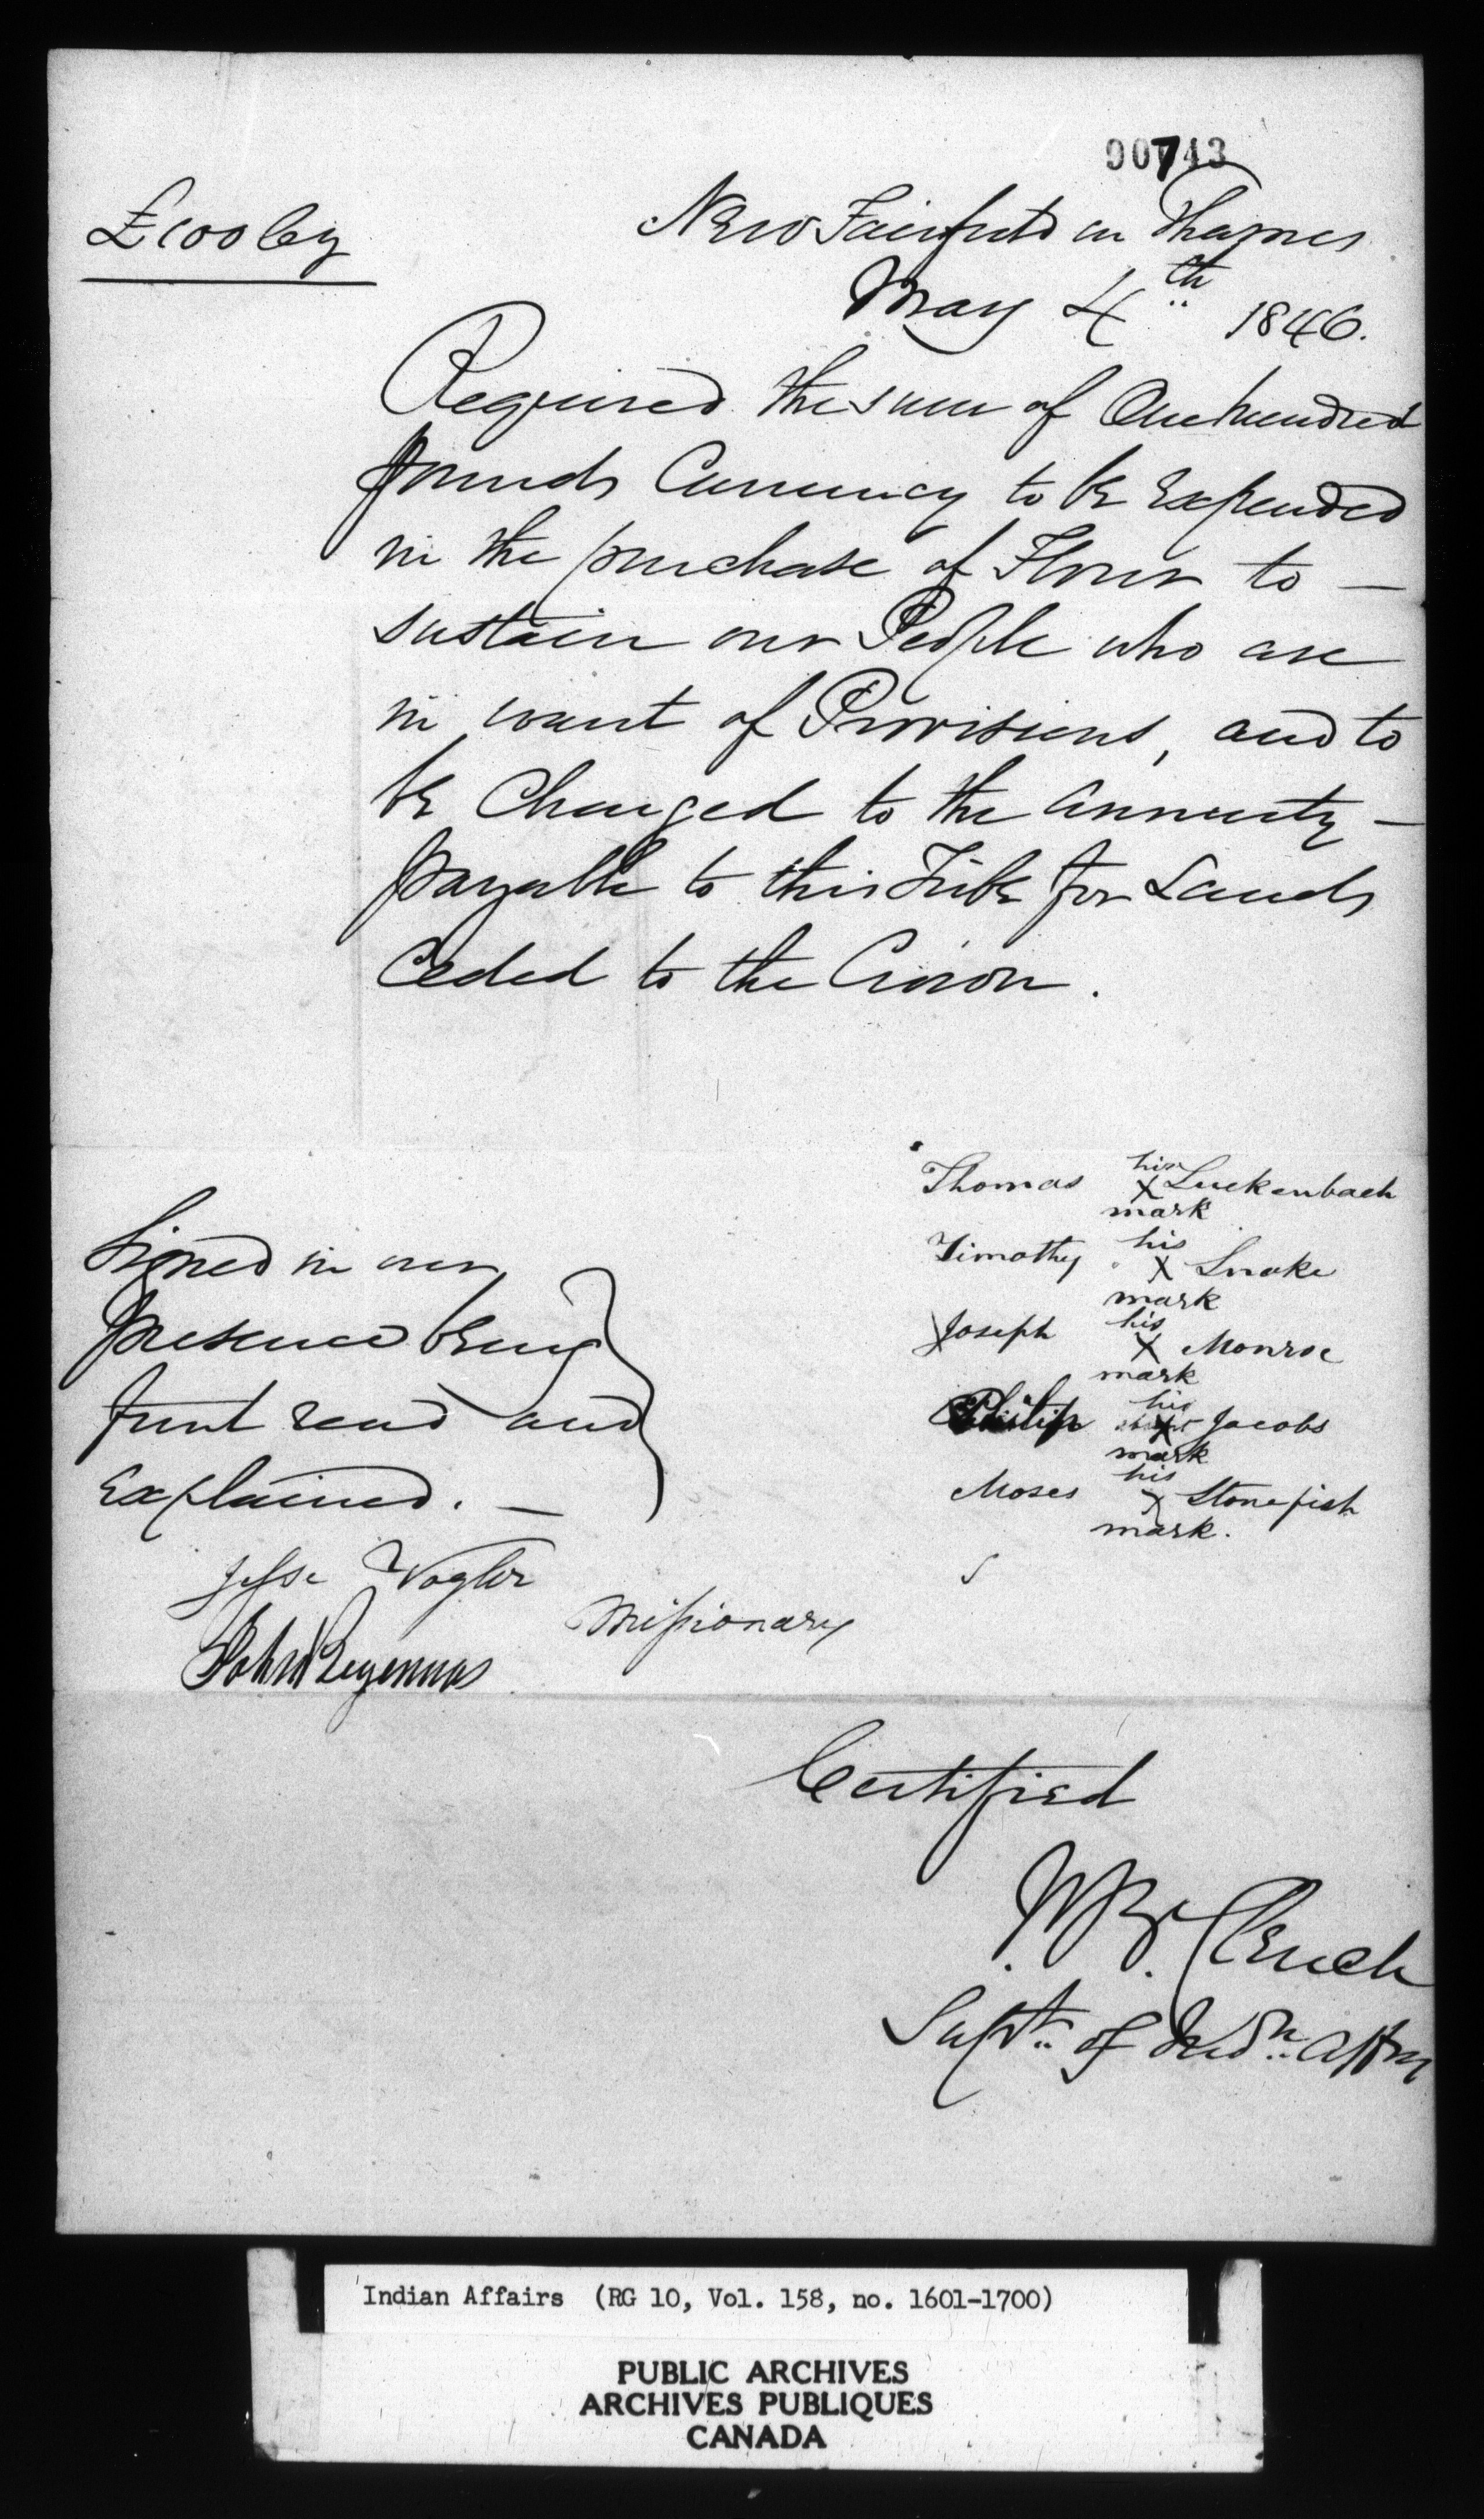 90743
£100 Cy
New Fairfield on Thames
May 4th 1846.
Required the sum of One hundred
pounds Currency to be expended
in the purchase of Flour to —
sustain our People who are
in want of Provisions, and to
be Charged to the Annuity —
payable to this Tribe for Lands
Ceded to the Crown.
Thomas his X mark Luckenbach
Timothy his X mark Snake
Joseph his X mark Monroe
Philip his X mark Jacobs
Moses his X mark. Stonefish
Signed in our
presence being
first read and
explained. —
Jesse Vogler
Missionary
John
Certified
J. B. Clench
Supt. of Indn. Affrs
Indian Affairs (RG 10, Vol. 158, no. 1601-1700)
PUBLIC ARCHIVES
ARCHIVES PUBLIQUES
CANADA